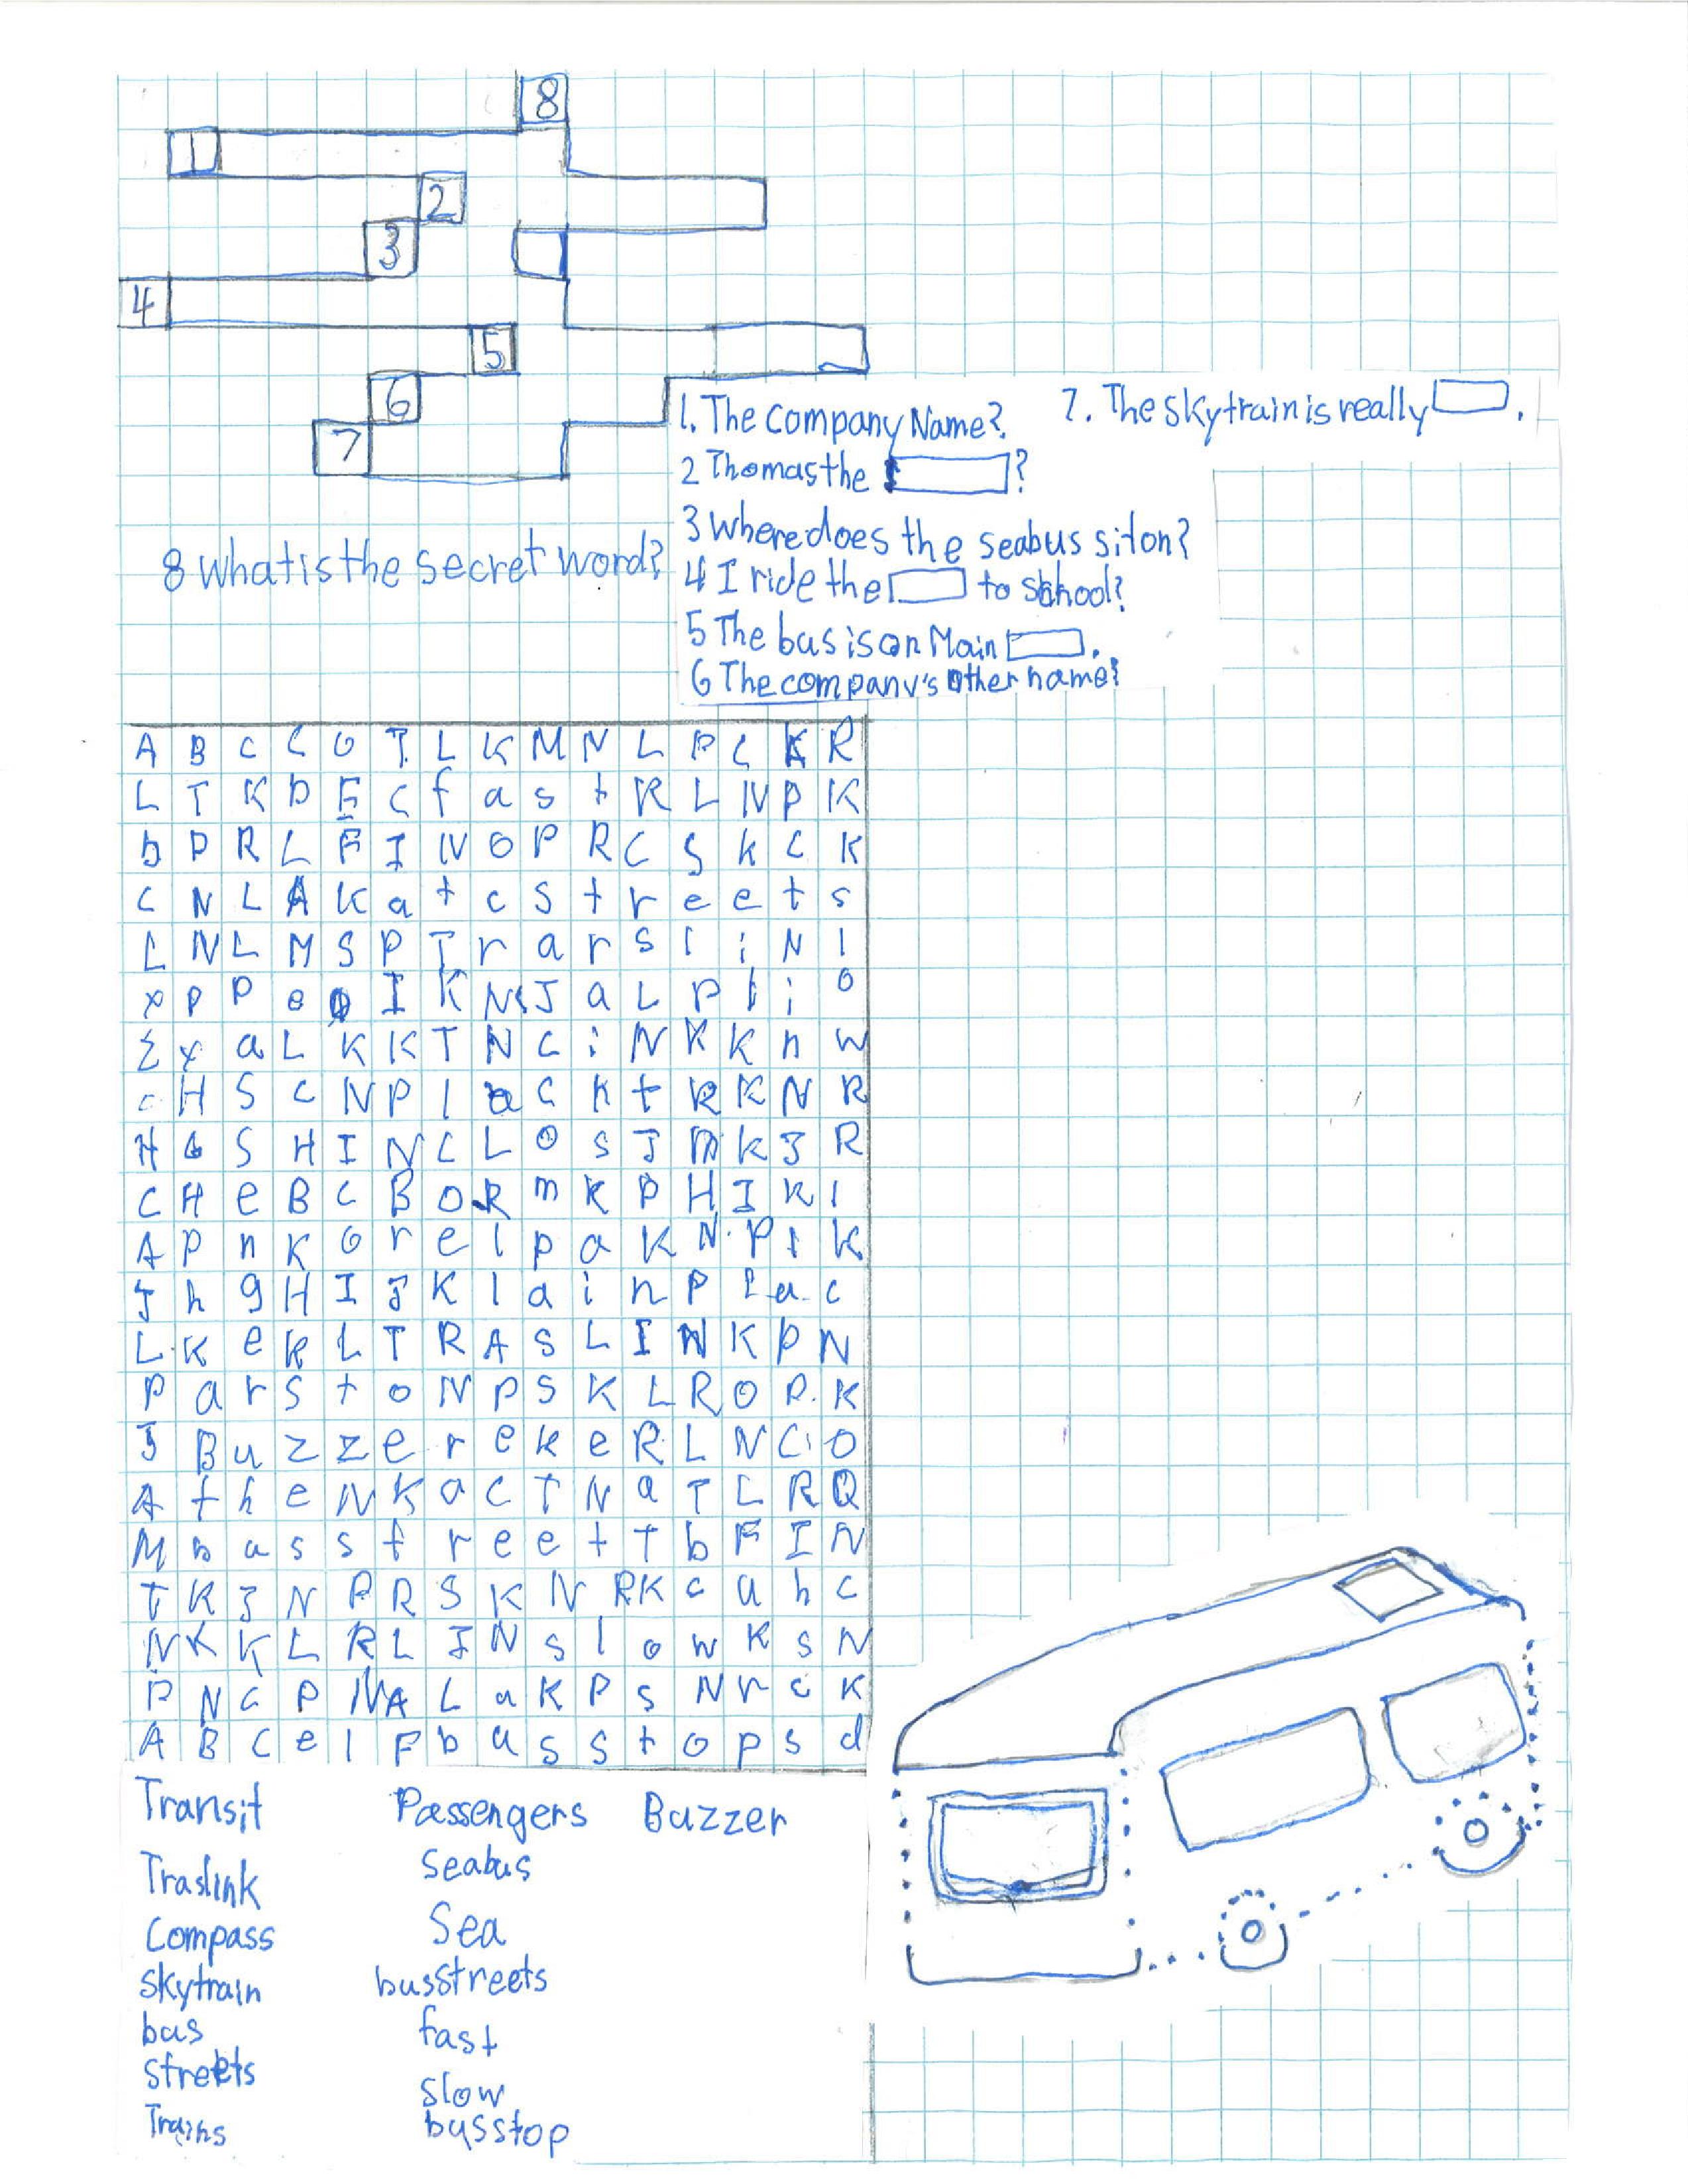 8
1
2
3
4
5
6
7
1. The Company Name?
2 Thomas the ?
3 Where does the seabus sit on?
4 I ride the to school?
5 The bus is on Main .
6 The company's other name?
7. The skytrain is really .
8 What is the secret word?
A B C C O T L K M N L P C K R
L T K D E C f a s t R L N P K
D P R L F I N O P R C S k C K
C N L A K a t c s t r e e t s
L N L M S P T r a r s l i N l
x P P e O I K N J a L P l i o
Z x a L K K T N C i N K K n w
c H S C N P l a C k t R K N R
H G S H I N C L O S J M K J R
C H e B C B O R m K P H I K l
A P n K O r e l p a K N P I K
J h g H I J K l a i n P l a c
L K e K L T R A S L I N K P N
P a r s t o N P S K L R O P K
J B u z z e r e k e R L N C O
A t h e N K a C T N a T L R Q
M b a s s t r e e t T b F I N
T K J N P R S K N R K c a h c
N K K L R L I N s l o w K s N
P N C P N A L a K P s N r c K
A B C e l F b u s s t o p s d
Transit Passengers Buzzer
Traslink Seabus
Compass Sea
Skytrain busStreets
bus fast
Streets slow
Trains busstop